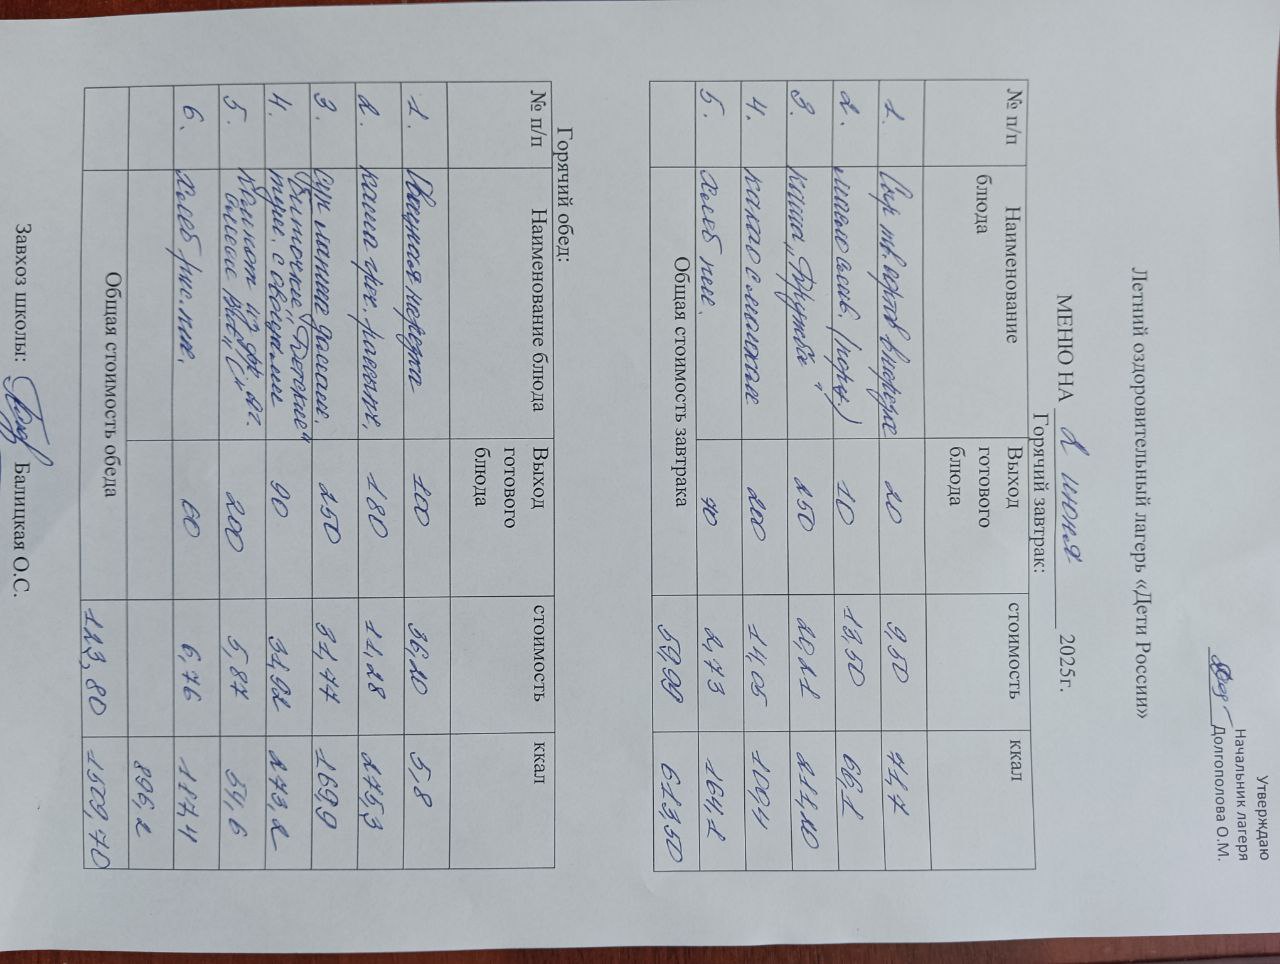 Утверждаю
Начальник лагеря
Долгополова О.М.
Летний оздоровительный лагерь «Дети России»
МЕНЮ НА 2 июня 2025г.
Горячий завтрак:
№ п/п Наименование блюда Выход готового блюда стоимость ккал
1. Сыр тв. сортов в нарезке 20 9,50 71,7
2. масло слив. (порц.) 10 13,50 66,1
3. каша "Дружба" 250 20,21 211,10
4. какао с молоком 200 14,05 100,4
5. Хлеб пше. 70 2,73 164,2
Общая стоимость завтрака 59,99 613,50
Горячий обед:
№ п/п Наименование блюда Выход готового блюда стоимость ккал
1. Овощная нарезка 100 36,20 5,8
2. каша греч. рассып. 180 11,28 275,3
3. суп лапша домаш. 250 31,77 169,9
4. Биточки "Детские" туш. с овощами 90 31,92 273,2
5. Компот из 200 5,87 54,6
6. Хлеб рж.пш. 60 6,76 187,4
896,2
Общая стоимость обеда 123,80 1509,70
Завхоз школы: Балицкая О.С.